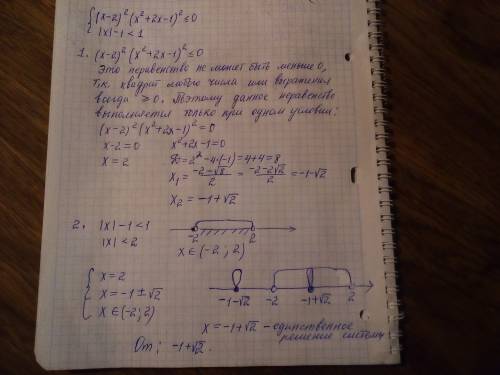 { (x-2)² (x²+2x-1)² ≤ 0
|x|-1 < 1
1. (x-2)² (x²+2x-1)² ≤ 0
Это неравенство не может быть меньше 0,
т.к. квадрат любого числа или выражения
всегда ≥ 0. Поэтому данное неравенство
выполняется только при одном условии:
(x-2)² (x²+2x-1)² = 0
x-2=0 x²+2x-1=0
x=2 D=2²-4·(-1)=4+4=8
x₁ = (-2-√8)/2 = (-2-2√2)/2 = -1-√2
x₂ = -1+√2
2. |x|-1<1
|x|<2
-2 2
x∈(-2; 2)
{ x=2
x=-1±√2
x∈(-2;2)
-1-√2 -2 -1+√2 2
x=-1+√2 - единственное
решение системы
От; -1+√2.